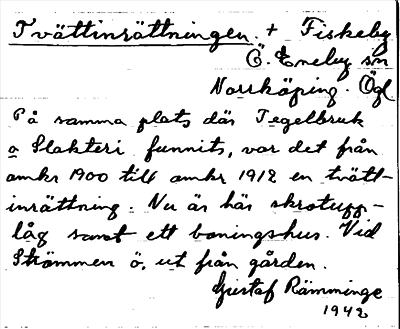 Tvättinrättningen. + Fiskeby
Ö. Eneby sn
Norrköping. Ögl
På samma plats där Tegelbruk
o Slakteri funnits, var det från
omkr 1900 till omkr 1912 en tvätt-
inrättning. Nu är här skrotupp-
låg samt ett boningshus. Vid
Strömmen ö. ut från gården.
Gustaf Rämminge
1942